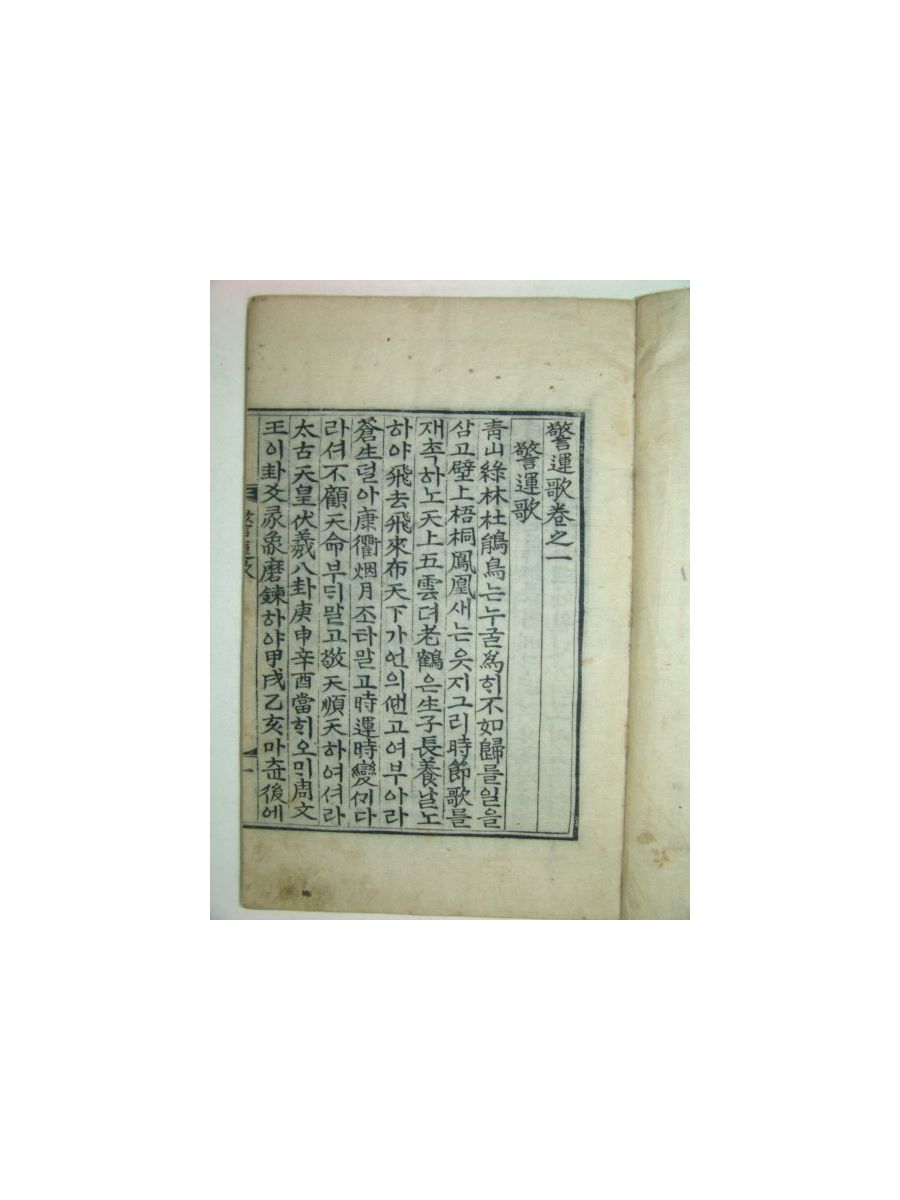 警運歌卷之一
警運歌
靑山綠林杜鵑鳥는누굴爲히不如歸를일을
삼고壁上梧桐鳳凰새는읏지그리時節歌를
재촉하노天上五雲뎌老鶴은生子長養날노
하야飛去飛來布天下가언의고여부아라
蒼生덜아康衢烟月조타말고時運時變다
라셔不顧天命부듸말고敬天順天하여셔라
太古天皇伏羲八卦庚申辛酉當히오미周文
王이卦爻彖象磨鍊하야甲戌乙亥마츤後에